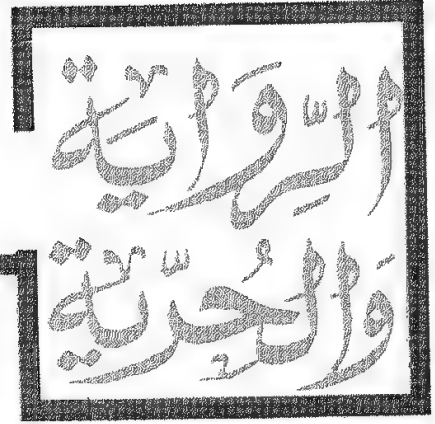 الرِّوَايَة
وَالحُرِّيَّة